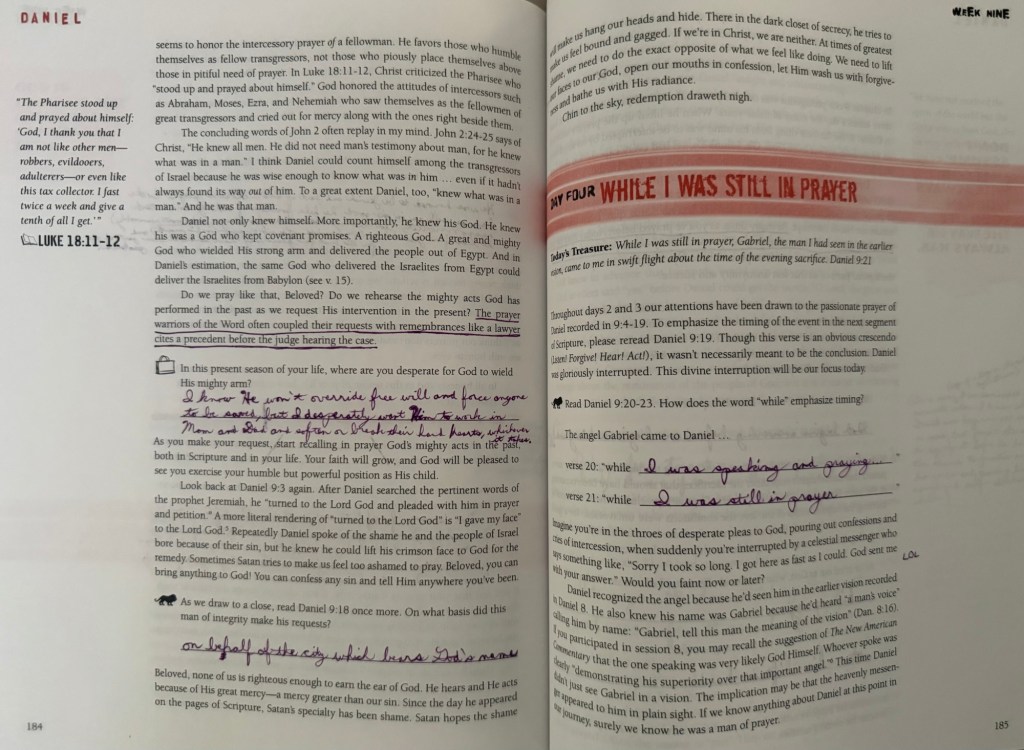 DANIEL
"The Pharisee stood up
and prayed about himself:
'God, I thank you that I
am not like other men—
robbers, evildooers,
adulterers—or even like
this tax collector. I fast
twice a week and give a
tenth of all I get.'"
LUKE 18:11-12
seems to honor the intercessory prayer of a fellowman. He favors those who humble
themselves as fellow transgressors, not those who piously place themselves above
those in pitiful need of prayer. In Luke 18:11-12, Christ criticized the Pharisee who
"stood up and prayed about himself." God honored the attitudes of intercessors such
as Abraham, Moses, Ezra, and Nehemiah who saw themselves as the fellowmen of
great transgressors and cried out for mercy along with the ones right beside them.
The concluding words of John 2 often replay in my mind. John 2:24-25 says of
Christ, "He knew all men. He did not need man's testimony about man, for he knew
what was in a man." I think Daniel could count himself among the transgressors
of Israel because he was wise enough to know what was in him ... even if it hadn't
always found its way out of him. To a great extent Daniel, too, "knew what was in a
man." And he was that man.
Daniel not only knew himself. More importantly, he knew his God. He knew
his was a God who kept covenant promises. A righteous God. A great and mighty
God who wielded His strong arm and delivered the people out of Egypt. And in
Daniel's estimation, the same God who delivered the Israelites from Egypt could
deliver the Israelites from Babylon (see v. 15).
Do we pray like that, Beloved? Do we rehearse the mighty acts God has
performed in the past as we request His intervention in the present? The prayer
warriors of the Word often coupled their requests with remembrances like a lawyer
cites a precedent before the judge hearing the case.
In this present season of your life, where are you desperate for God to wield
His mighty arm?
I know He won't override free will and force anyone
to be saved, but I desperately want Him to work in
Mom and Dad and soften or break their hard hearts, whichever
it takes.
As you make your request, start recalling in prayer God's mighty acts in the past,
both in Scripture and in your life. Your faith will grow, and God will be pleased to
see you exercise your humble but powerful position as His child.
Look back at Daniel 9:3 again. After Daniel searched the pertinent words of
the prophet Jeremiah, he "turned to the Lord God and pleaded with him in prayer
and petition." A more literal rendering of "turned to the Lord God" is "I gave my face"
to the Lord God.5 Repeatedly Daniel spoke of the shame he and the people of Israel
bore because of their sin, but he knew he could lift his crimson face to God for the
remedy. Sometimes Satan tries to make us feel too ashamed to pray. Beloved, you can
bring anything to God! You can confess any sin and tell Him anywhere you've been.
As we draw to a close, read Daniel 9:18 once more. On what basis did this
man of integrity make his requests?
on behalf of the city which bears God's name
Beloved, none of us is righteous enough to earn the ear of God. He hears and He acts
because of His great mercy—a mercy greater than our sin. Since the day he appeared
on the pages of Scripture, Satan's specialty has been shame. Satan hopes the shame
184
WEEK NINE
make us hang our heads and hide. There in the dark closet of secrecy, he tries to
us feel bound and gagged. If we're in Christ, we are neither. At times of greatest
we need to do the exact opposite of what we feel like doing. We need to lift
faces to our God, open our mouths in confession, let Him wash us with forgive-
and bathe us with His radiance.
Chin to the sky, redemption draweth nigh.
DAY FOUR WHILE I WAS STILL IN PRAYER
Today's Treasure: While I was still in prayer, Gabriel, the man I had seen in the earlier
vision, came to me in swift flight about the time of the evening sacrifice. Daniel 9:21
Throughout days 2 and 3 our attentions have been drawn to the passionate prayer of
Daniel recorded in 9:4-19. To emphasize the timing of the event in the next segment
of Scripture, please reread Daniel 9:19. Though this verse is an obvious crescendo
(Listen! Forgive! Hear! Act!), it wasn't necessarily meant to be the conclusion. Daniel
was gloriously interrupted. This divine interruption will be our focus today.
Read Daniel 9:20-23. How does the word "while" emphasize timing?
The angel Gabriel came to Daniel ...
verse 20: "while I was speaking and praying... "
verse 21: "while I was still in prayer "
Imagine you're in the throes of desperate pleas to God, pouring out confessions and
cries of intercession, when suddenly you're interrupted by a celestial messenger who
says something like, "Sorry I took so long. I got here as fast as I could. God sent me
with your answer." Would you faint now or later?
LOL
Daniel recognized the angel because he'd seen him in the earlier vision recorded
in Daniel 8. He also knew his name was Gabriel because he'd heard "a man's voice"
calling him by name: "Gabriel, tell this man the meaning of the vision" (Dan. 8:16).
If you participated in session 8, you may recall the suggestion of The New American
Commentary that the one speaking was very likely God Himself. Whoever spoke was
clearly "demonstrating his superiority over that important angel."6 This time Daniel
didn't just see Gabriel in a vision. The implication may be that the heavenly messen-
ger appeared to him in plain sight. If we know anything about Daniel at this point in
our journey, surely we know he was a man of prayer.
185